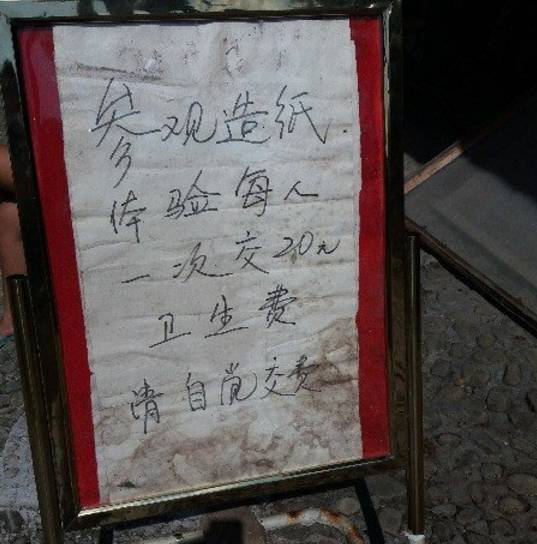 参观造纸
体验每人
一次交20元
卫生费
请自觉交费